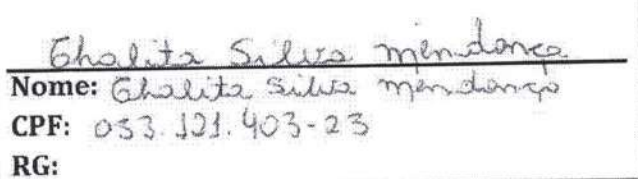 Thalita Silva mendonça
Nome: Thalita Silva mendonça
CPF: 033.121.403-23
RG: